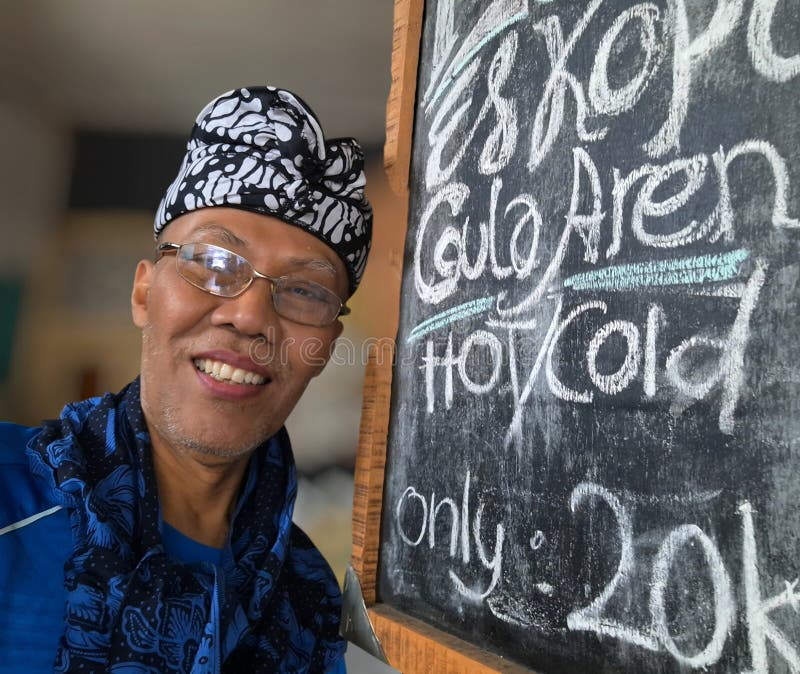 Es Kopi
Gula Aren
Hot/Cold
only : 20k
dreamstime